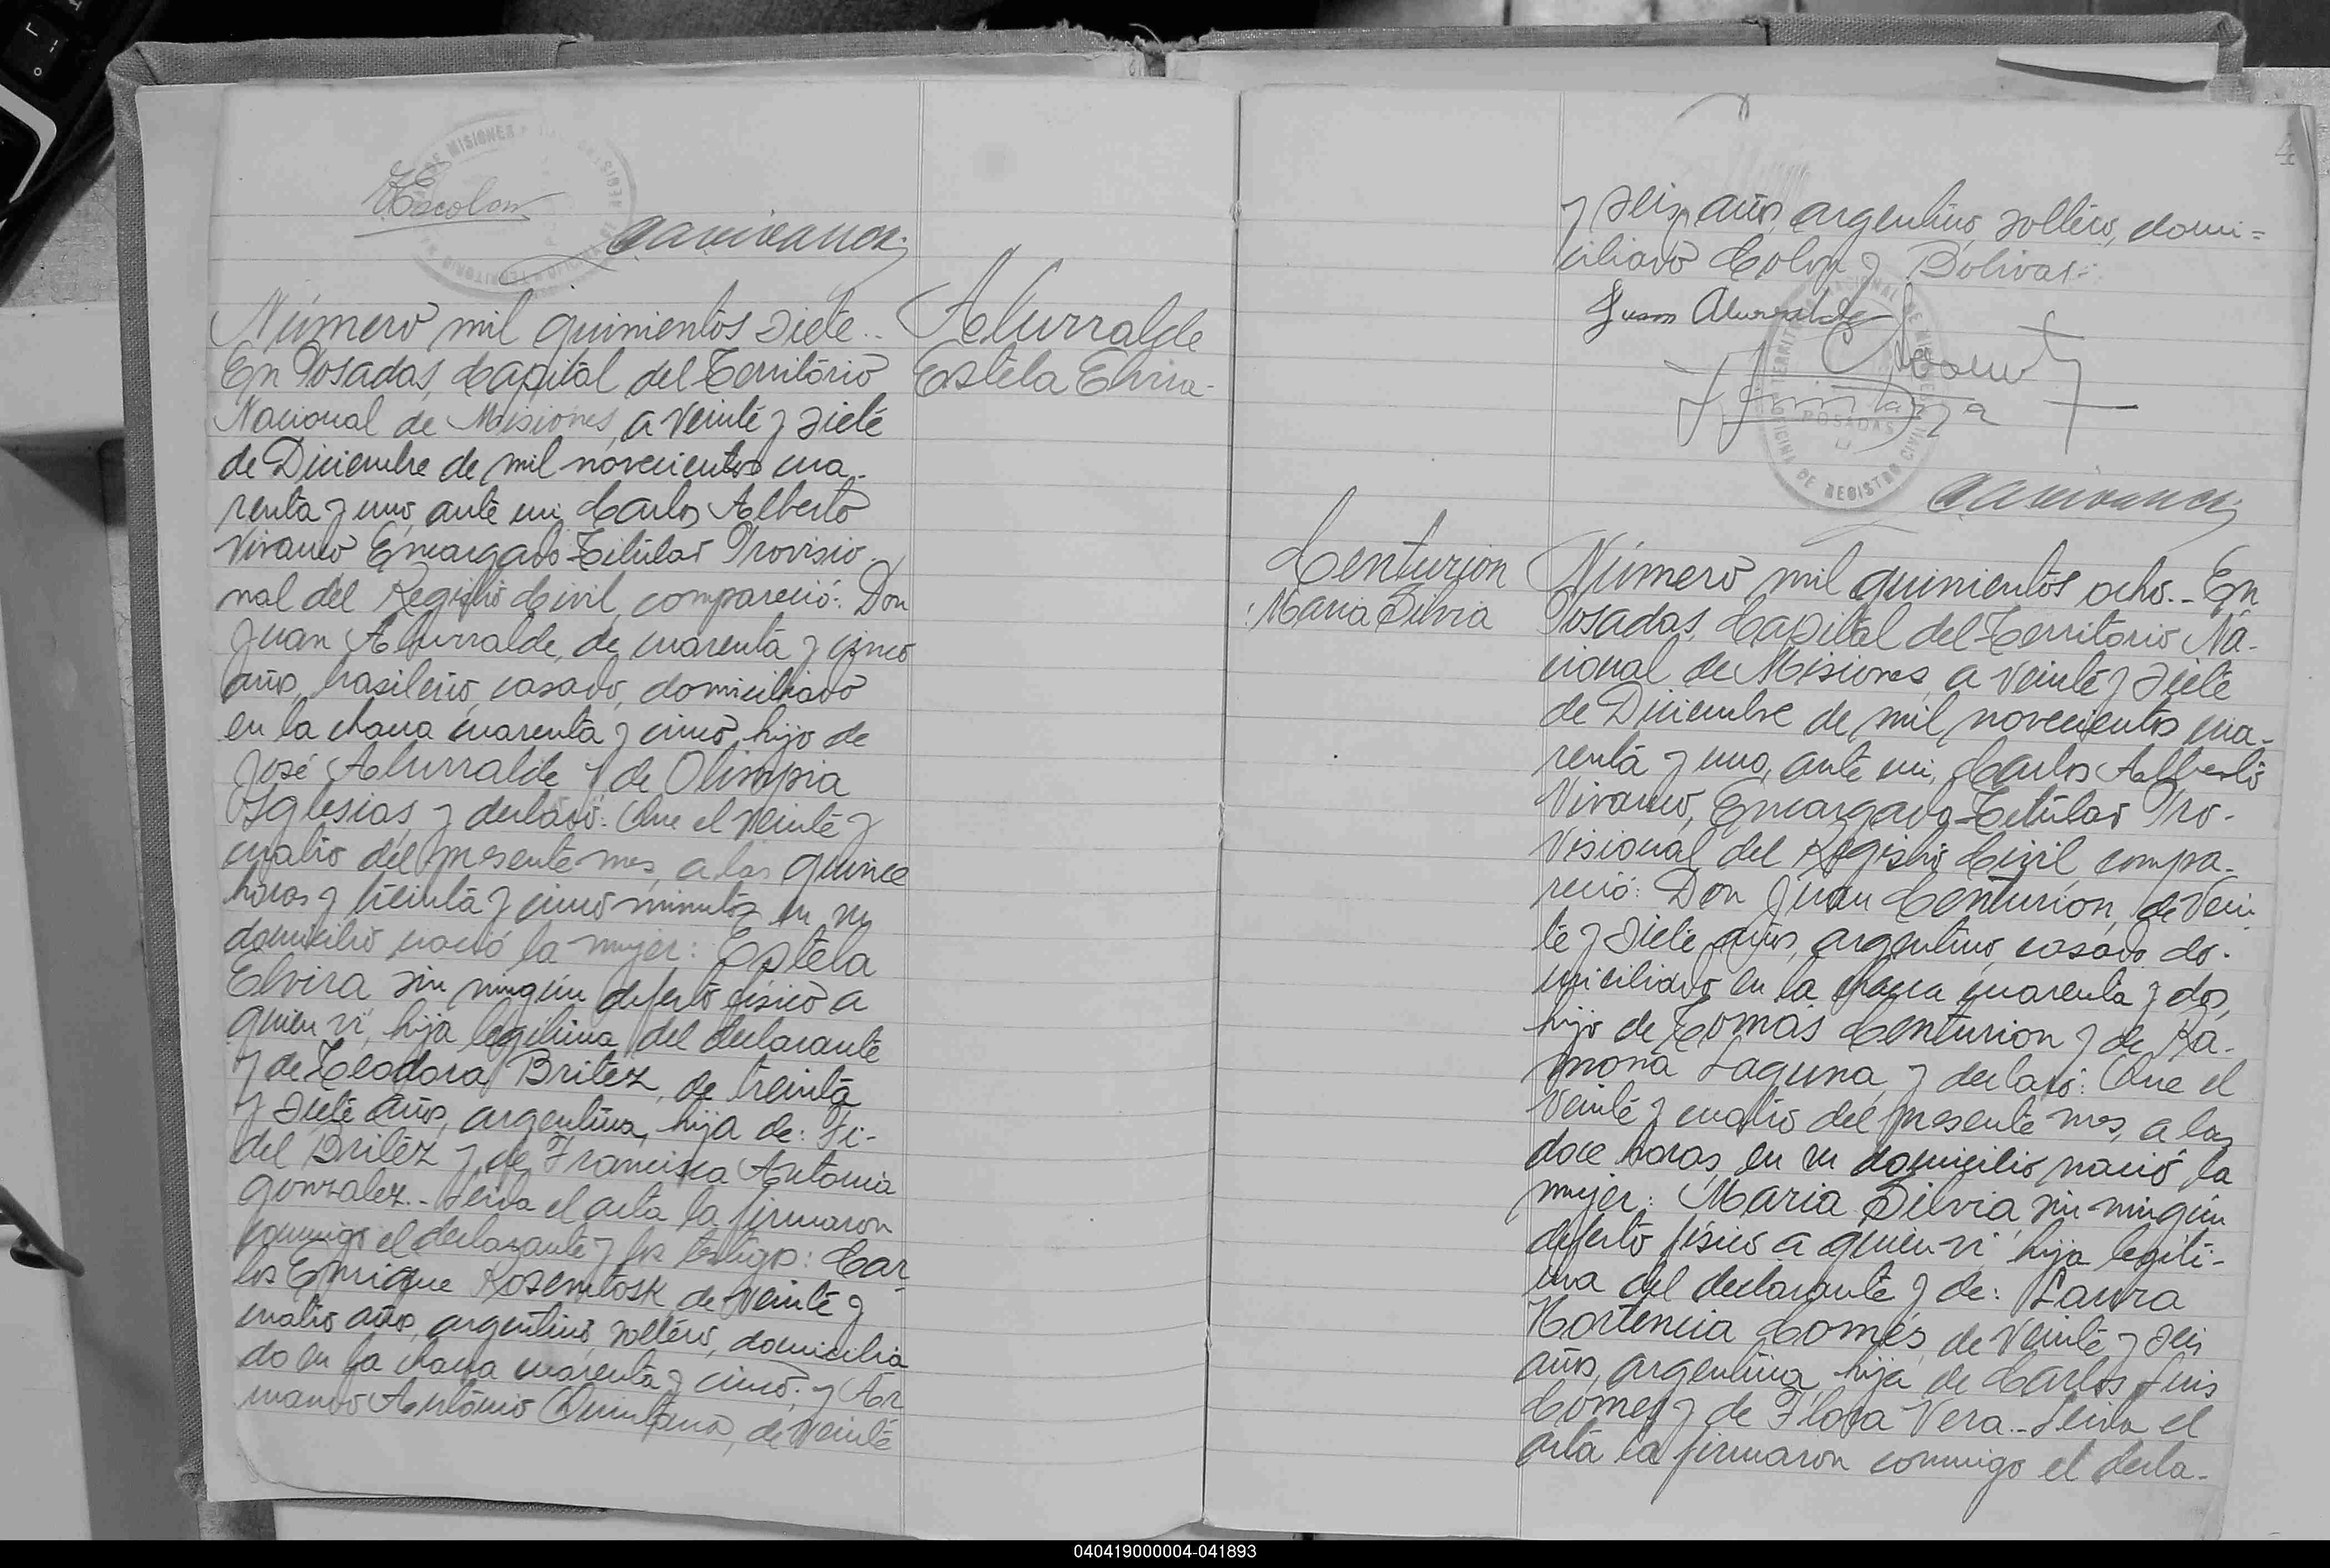 Escolar
Número mil quinientos siete..
Aburralde
Estela Elvira-
En Posadas, Capital del Territorio
Nacional de Misiones, a veinte y siete
de Diciembre de mil novecientos cua-
renta y uno, ante mi, Carlos Alberto
Vivanco Encargado Titular Provisio-
nal del Registro Civil, compareció: Don
Juan Aburralde, de cuarenta y cinco
años, brasileño, casado, domiciliado
en la chacra cuarenta y cinco, hijo de
José Aburralde y de Olimpia
Yglesias, y declaró: Que el veinte y
cuatro del presente mes, a las quince
horas y treinta y cinco minutos en su
domicilio nació la mujer: Estela
Elvira sin ningún defecto físico a
quien vi, hija legítima del declarante
y de Teodora Britez, de treinta
y siete años, argentina, hija de: Fi-
del Britez y de Francisca Antonia
Gonzalez.- Leida el acta la firmaron
conmigo el declarante y los testigos: Car-
los Enrique Rosembosk, de veinte y
cuatro años, argentino, soltero, domicilia
do en la chacra cuarenta y cinco; y Ar
mando Antonio Quintana, de veinte
y seis años, argentino, soltero, domi=
ciliado Colon y Bolivar.-
Juan Aburralde
OFICINA DE REGISTRO CIVIL
POSADAS
Centurion
Maria Silvia
Número mil quinientos ocho.- En
Posadas, Capital del Territorio Na-
cional de Misiones, a veinte y siete
de Diciembre de mil novecientos cua-
renta y uno, ante mi, Carlos Alberto
Vivanco, Encargado Titular Pro-
visional del Registro Civil, compa-
reció: Don Juan Centurion, de vein
te y siete años, argentino, casado, do-
miciliado en la chacra cuarenta y dos,
hijo de Tomás Centurion y de Ra-
mona Laguna, y declaró: Que el
veinte y cuatro del presente mes, a las
doce horas, en su domicilio nació la
mujer: Maria Silvia sin ningún
defecto físico a quien vi, hija legíti-
ma del declarante y de: Laura
Hortencia Gomes, de veinte y seis
años, argentina, hija de Carlos Luis
Gomes y de Flora Vera.- Leida el
acta la firmaron conmigo el decla-
040419000004-041893